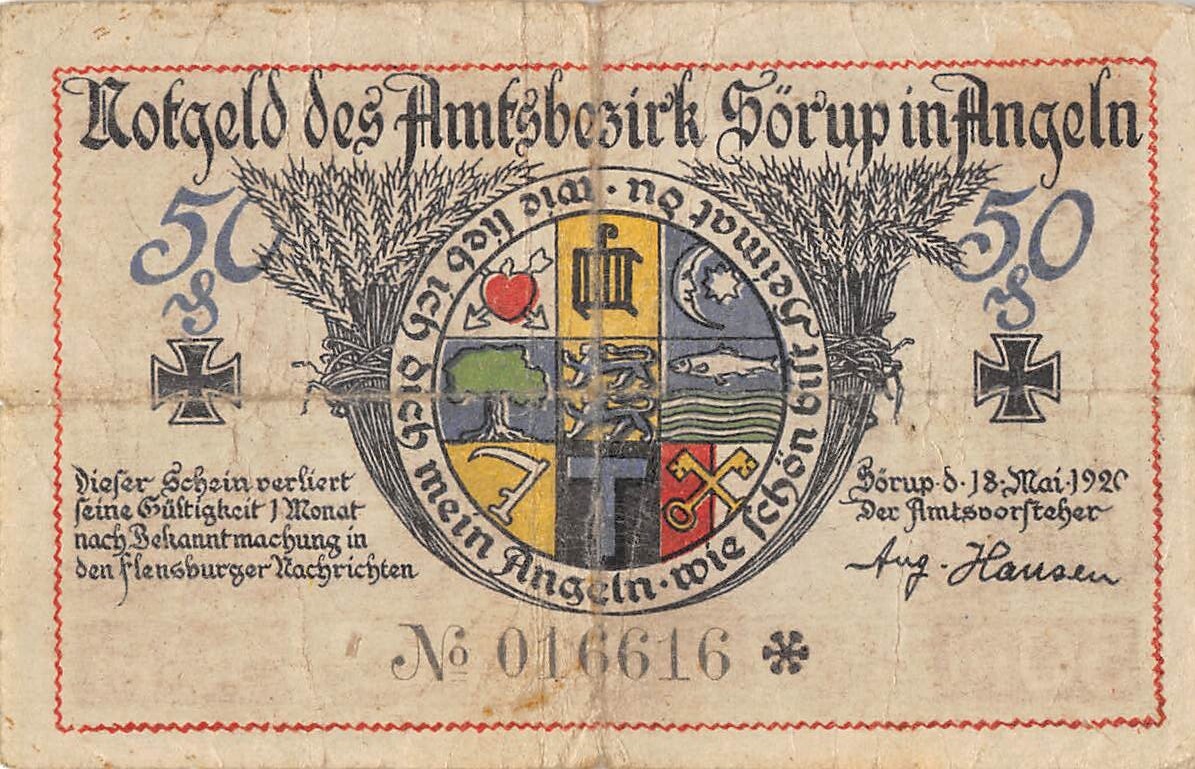 Notgeld des Amtsbezirk Sörup in Angeln
50 ₰
50 ₰
wie lieb ich dich mein Angeln · wie schön bist Heimat du ·
Dieser Schein verliert
seine Gültigkeit 1 Monat
nach Bekanntmachung in
den Flensburger Nachrichten
Sörup d. 18. Mai 1920
Der Amtsvorsteher
Aug. Hansen
No 016616